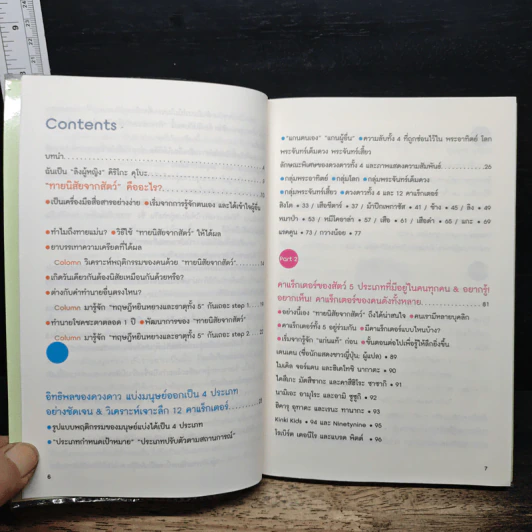 Contents
บทนำ 4
ฉันเป็น "ลิงผู้หญิง" คิริโกะ คุโบะ 10
"ทายนิสัยจากสัตว์" คืออะไร? 15
●เป็นเครื่องมือสื่อสารอย่างง่าย ●เริ่มจากการรู้จักตนเอง และได้เข้าใจผู้อื่น
●ทำไมถึงทายแม่น? ●วิธีใช้ "ทายนิสัยจากสัตว์" ให้ได้ผล
●ยาบรรเทาความเครียดที่ได้ผล
Column วิเคราะห์พฤติกรรมของคนด้วย "ทายนิสัยจากสัตว์"
●เกิดวันเดียวกันต้องนิสัยเหมือนกันด้วยหรือ?
●ต่างกับตำทำนายอื่นตรงไหน?
Column มารู้จัก "ทฤษฎีหยินหยางและธาตุทั้ง 5" กันเถอะ step 1
●ทำนายโชคชะตาตลอด 1 ปี ●พัฒนาการของ "ทายนิสัยจากสัตว์"
Column มารู้จัก "ทฤษฎีหยินหยางและธาตุทั้ง 5" กันเถอะ step 2
อิทธิพลของดวงดาว แบ่งมนุษย์ออกเป็น 4 ประเภท
อย่างชัดเจน & วิเคราะห์เจาะลึก 12 คาแร็กเตอร์
●รูปแบบพฤติกรรมของมนุษย์แบ่งได้เป็น 4 ประเภท
●"ประเภทกำหนดเป้าหมาย" "ประเภทปรับตัวตามสถานการณ์"
6
●"แกนตนเอง" "แกนผู้อื่น" ●ความลับทั้ง 4 ที่ถูกซ่อนไว้ใน พระอาทิตย์ โลก
พระจันทร์เต็มดวง พระจันทร์เสี้ยว
ลักษณะพิเศษของดวงดาวทั้ง 4 และภาพแสดงความสัมพันธ์ 26
●กลุ่มพระอาทิตย์ ●กลุ่มโลก ●กลุ่มพระจันทร์เต็มดวง
●กลุ่มพระจันทร์เสี้ยว ●ดวงดาวทั้ง 4 และ 12 คาแร็กเตอร์
สิงโต • 33 / เสือชีตาร์ • 37 / ม้าเปกาซัส • 41 / ช้าง • 45 / ลิง • 49
หมาป่า • 53 / หมีโคอาล่า • 57 / เสือ • 61 / เสือดำ • 65 / แกะ • 69
แรคคูน • 73 / กวางน้อย • 77
Part 2
คาแร็กเตอร์ของสัตว์ 5 ประเภทที่มีอยู่ในคนทุกคน & อยากรู้!
อยากเห็น! คาแร็กเตอร์ของคนดังทั้งหลาย 81
●อย่างนี้เอง "ทายนิสัยจากสัตว์" ถึงได้น่าสนใจ ●คนเรามีหลายบุคลิก
●คาแร็กเตอร์ทั้ง 5 อยู่ร่วมกัน ●มีคาแร็กเตอร์แบบไหนบ้าง?
●เริ่มจากรู้จัก "แก่นแท้" ก่อน ●ขั้นตอนต่อไปเพื่อรู้ให้ลึกยิ่งขึ้น
Kinki Kids • 94 และ Ninetynine • 95
โรเบิร์ต เดอนีโร และแบรด พิตต์ • 96
7